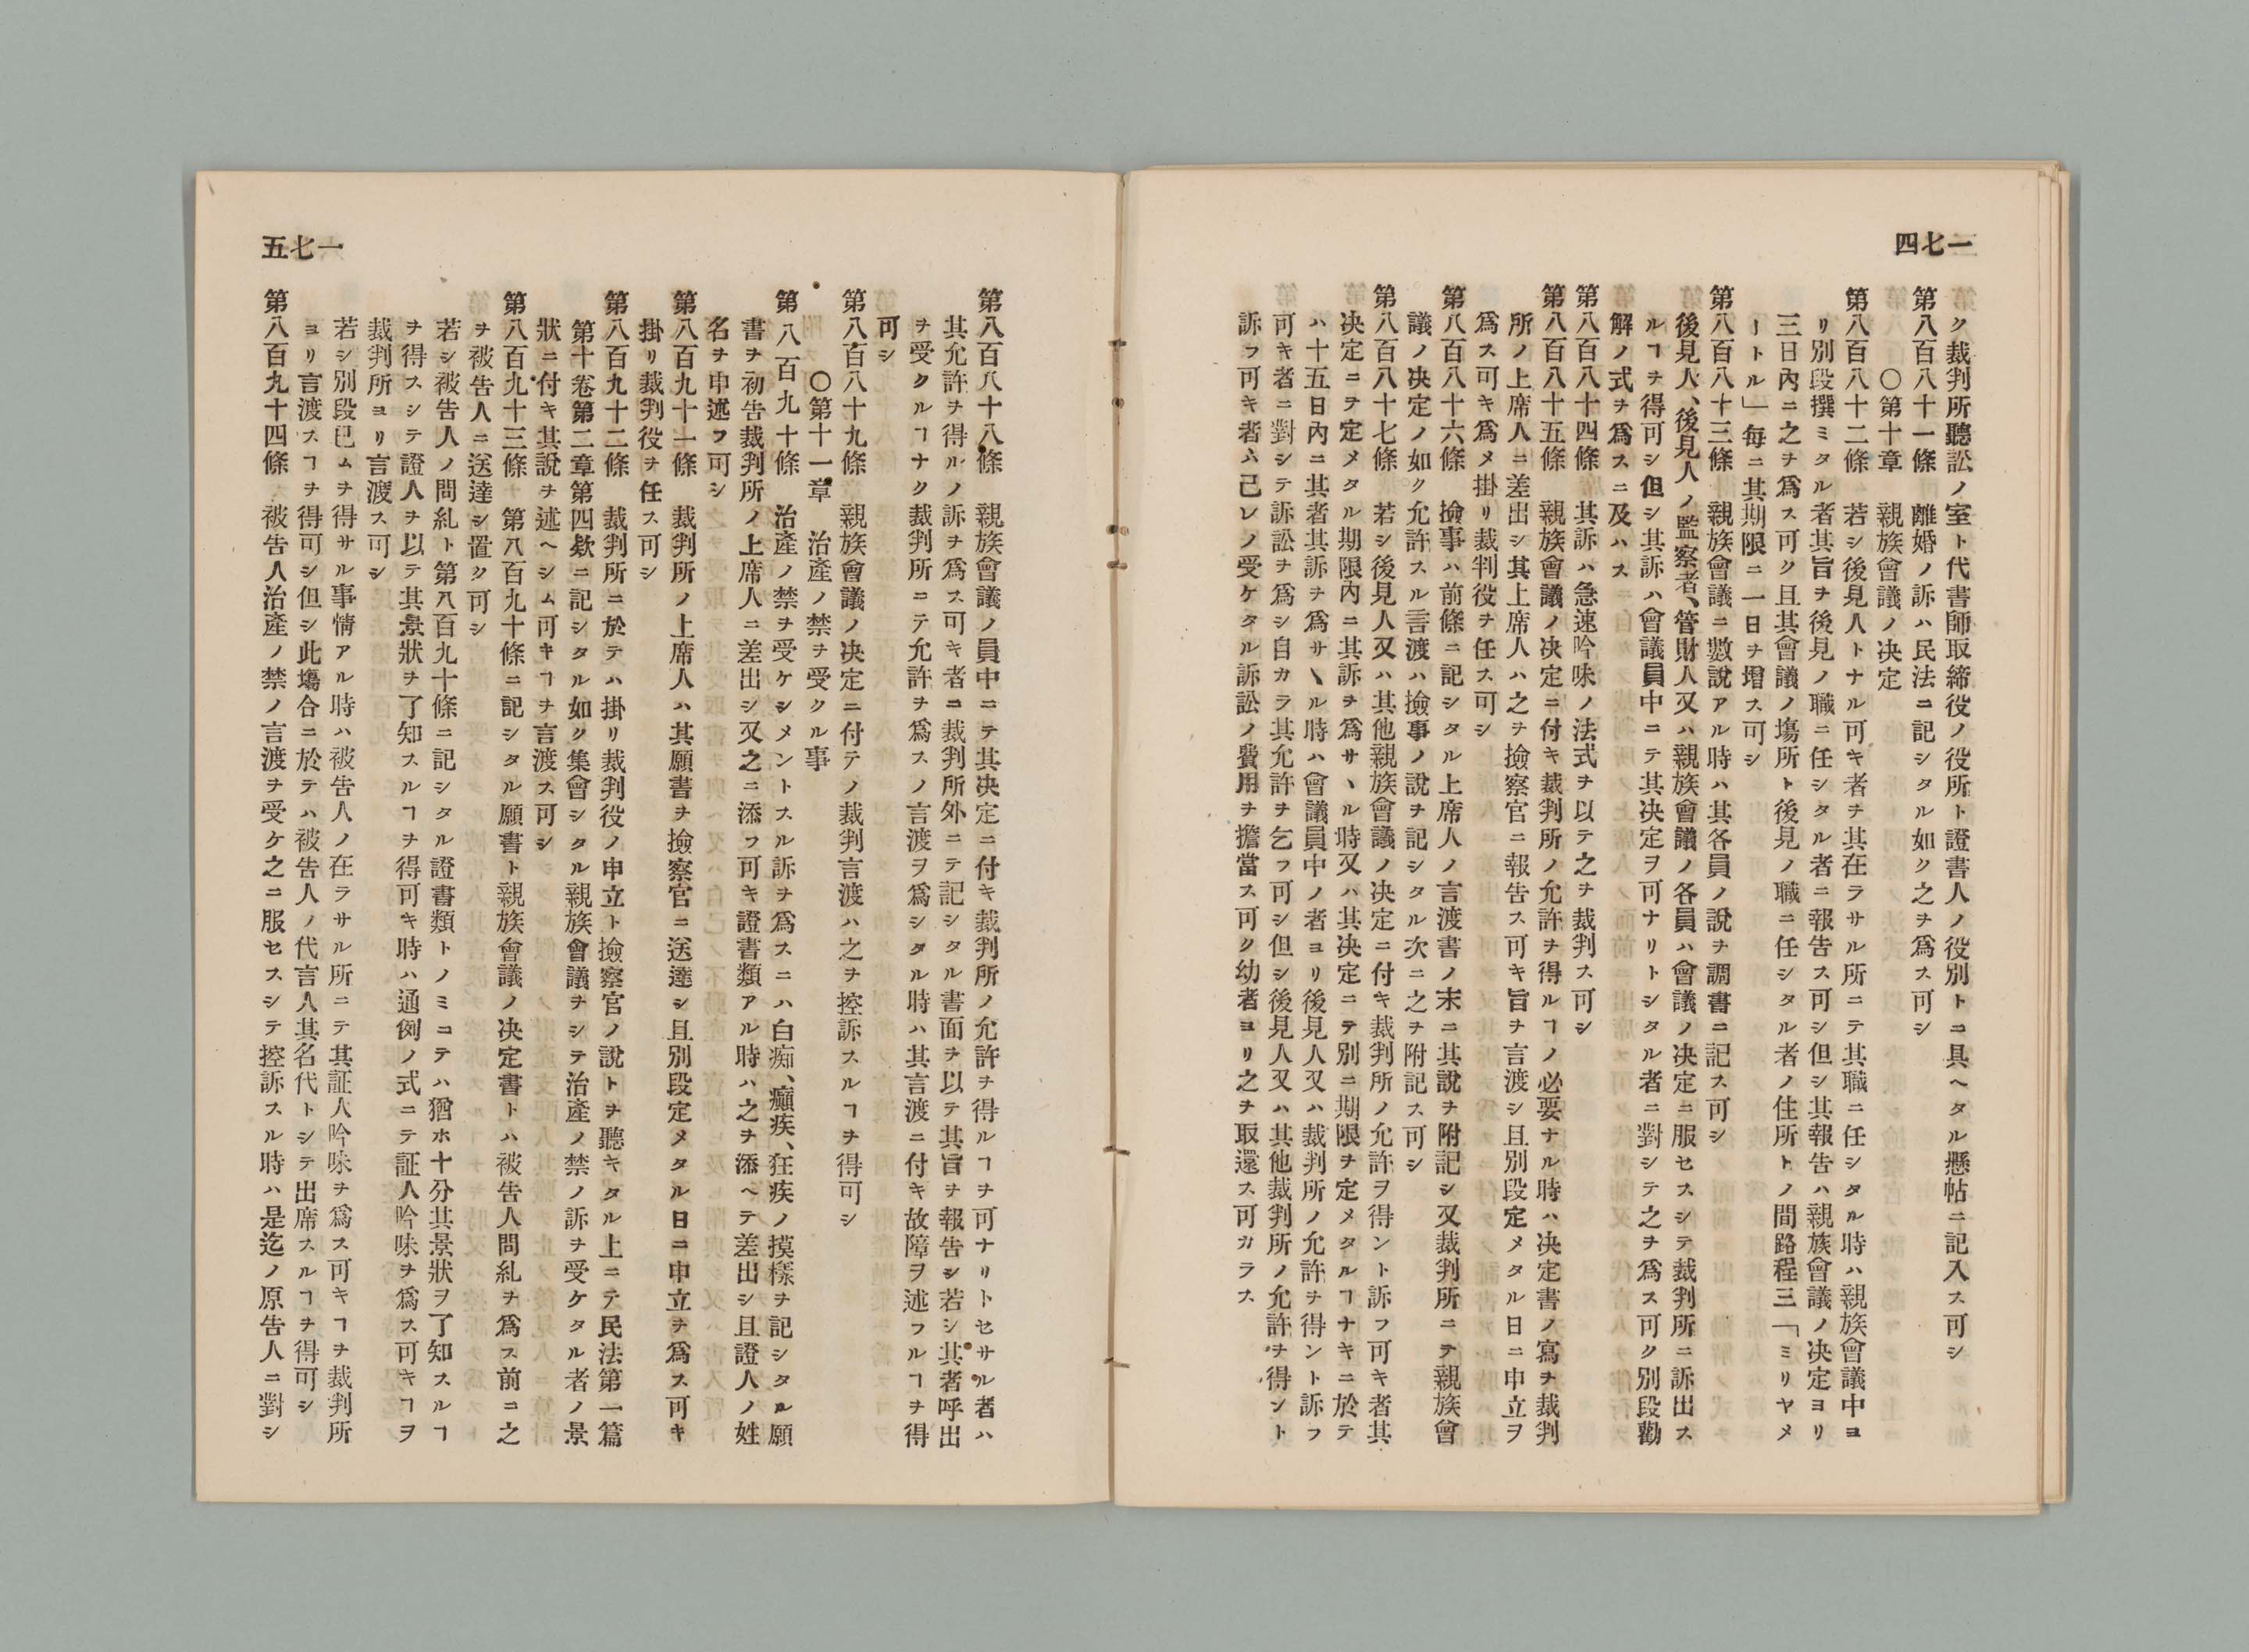 一七四
ク裁判所聽訟ノ室ト代書師取締役ノ役所ト證書人ノ役別トニ具ヘタル懸帖ニ記入ス可シ
第八百八十一條　離婚ノ訴ハ民法ニ記シタル如ク之ヲ爲ス可シ
〇第十章　親族會議ノ决定
第八百八十二條　若シ後見人トナル可キ者ヲ其在ラサル所ニテ其職ニ任シタル時ハ親族會議中ヨ
リ別段撰ミタル者其旨ヲ後見ノ職ニ任シタル者ニ報告ス可シ但シ其報告ハ親族會議ノ决定ヨリ
三日內ニ之ヲ爲ス可ク且其會議ノ塲所ト後見ノ職ニ任シタル者ノ住所トノ間路程三「ミリヤメ
ートル」每ニ其期限ニ一日ヲ增ス可シ
第八百八十三條　親族會議ニ數說アル時ハ其各員ノ說ヲ調書ニ記ス可シ
後見人、後見人ノ監察者、管財人又ハ親族會議ノ各員ハ會議ノ决定ニ服セスシテ裁判所ニ訴出ス
ルヿヲ得可シ但シ其訴ハ會議員中ニテ其决定ヲ可ナリトシタル者ニ對シテ之ヲ爲ス可ク別段勸
解ノ式ヲ爲スニ及ハス
第八百八十四條　其訴ハ急速吟味ノ法式ヲ以テ之ヲ裁判ス可シ
第八百八十五條　親族會議ノ决定ニ付キ裁判所ノ允許ヲ得ルヿノ必要ナル時ハ决定書ノ寫ヲ裁判
所ノ上席人ニ差出シ其上席人ハ之ヲ撿察官ニ報告ス可キ旨ヲ言渡シ且別段定メタル日ニ申立ヲ
爲ス可キ爲メ掛リ裁判役ヲ任ス可シ
第八百八十六條　撿事ハ前條ニ記シタル上席人ノ言渡書ノ末ニ其說ヲ附記シ又裁判所ニテ親族會
議ノ决定ノ如ク允許スル言渡ハ撿事ノ說ヲ記シタル次ニ之ヲ附記ス可シ
第八百八十七條　若シ後見人又ハ其他親族會議ノ决定ニ付キ裁判所ノ允許ヲ得ント訴フ可キ者其
决定ニテ定メタル期限內ニ其訴ヲ爲サヽル時又ハ其决定ニテ別ニ期限ヲ定メタルヿナキニ於テ
ハ十五日內ニ其者其訴ヲ爲サヽル時ハ會議員中ノ者ヨリ後見人又ハ裁判所ノ允許ヲ得ント訴フ
可キ者ニ對シテ訴訟ヲ爲シ自カラ其允許ヲ乞フ可シ但シ後見人又ハ其他裁判所ノ允許ヲ得ント
訴フ可キ者ハ己レノ受ケタル訴訟ノ費用ヲ擔當ス可ク幼者ヨリ之ヲ取還ス可カラス
一七五
第八百八十八條　親族會議ノ員中ニテ其决定ニ付キ裁判所ノ允許ヲ得ルヿヲ可ナリトセサル者ハ
其允許ヲ得ルノ訴ヲ爲ス可キ者ニ裁判所外ニテ記シタル書面ヲ以テ其旨ヲ報告シ若シ其者呼出
ヲ受クルヿナク裁判所ニテ允許ヲ爲スノ言渡ヲ爲シタル時ハ其言渡ニ付キ故障ヲ述フルヿヲ得
可シ
第八百八十九條　親族會議ノ决定ニ付テノ裁判言渡ハ之ヲ控訴スルヿヲ得可シ
〇第十一章　治產ノ禁ヲ受クル事
第八百九十條　治產ノ禁ヲ受ケシメントスル訴ヲ爲スニハ白痴、癲疾、狂疾ノ摸樣ヲ記シタル願
書ヲ初告裁判所ノ上席人ニ差出シ又之ニ添フ可キ證書類アル時ハ之ヲ添ヘテ差出シ且證人ノ姓
名ヲ申述フ可シ
第八百九十一條　裁判所ノ上席人ハ其願書ヲ撿察官ニ送達シ且別段定メタル日ニ申立ヲ爲ス可キ
掛リ裁判役ヲ任ス可シ
第八百九十二條　裁判所ニ於テハ掛リ裁判役ノ申立ト撿察官ノ說トヲ聽キタル上ニテ民法第一篇
第十卷第二章第四欵ニ記シタル如ク集會シタル親族會議ヲシテ治產ノ禁ノ訴ヲ受ケタル者ノ景
狀ニ付キ其說ヲ述ヘシム可キヿヲ言渡ス可シ
第八百九十三條　第八百九十條ニ記シタル願書ト親族會議ノ决定書トハ被告人問糺ヲ爲ス前ニ之
ヲ被告人ニ送達シ置ク可シ
若シ被告人ノ問糺ト第八百九十條ニ記シタル證書類トノミニテハ猶ホ十分其景狀ヲ了知スルヿ
ヲ得スシテ證人ヲ以テ其景狀ヲ了知スルヿヲ得可キ時ハ通例ノ式ニテ証人吟味ヲ爲ス可キヿヲ
裁判所ヨリ言渡ス可シ
若シ別段已ムヲ得サル事情アル時ハ被告人ノ在ラサル所ニテ其証人吟味ヲ爲ス可キヿヲ裁判所
ヨリ言渡スヿヲ得可シ但シ此塲合ニ於テハ被告人ノ代言人其名代トシテ出席スルヿヲ得可シ
第八百九十四條　被告人治產ノ禁ノ言渡ヲ受ケ之ニ服セスシテ控訴スル時ハ是迄ノ原告人ニ對シ